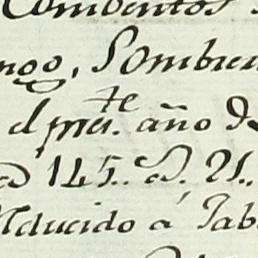 Combentos
ngo, Sombre
el pres.te año de
145.. D. 21..
Reducido a Tab